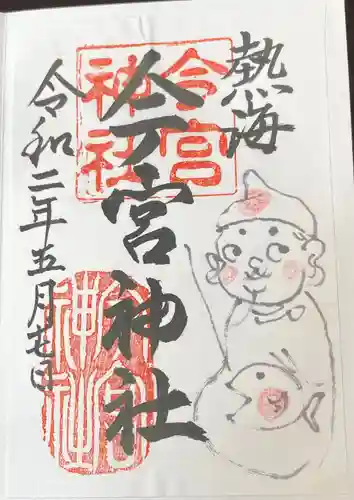 熱海
今宮神社
令和二年五月七日
今宮
神社